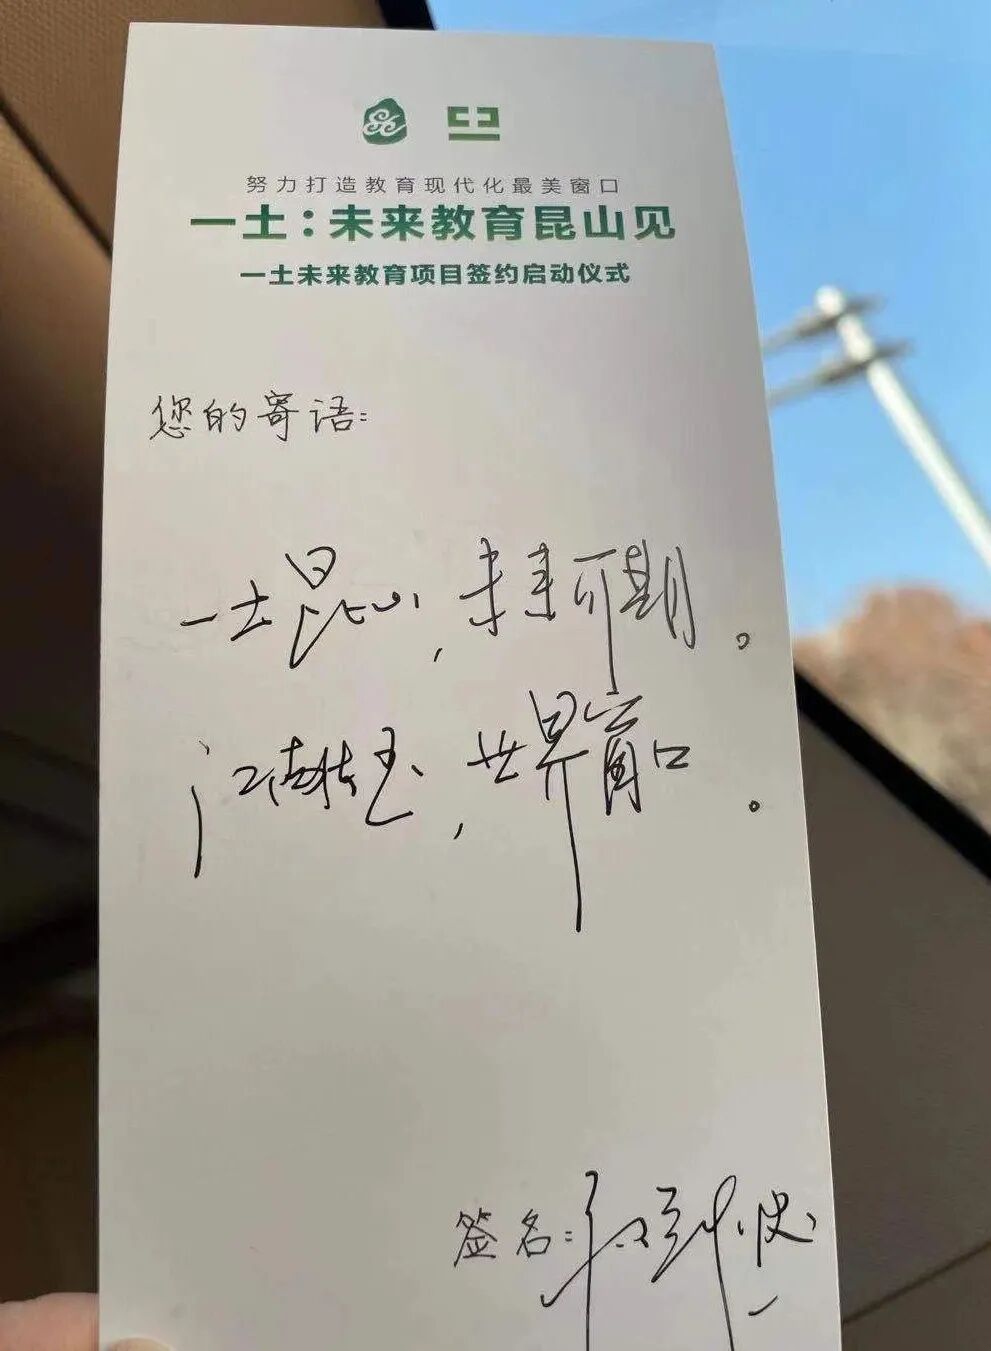 努力打造教育现代化最美窗口
一土：未来教育昆山见
一土未来教育项目签约启动仪式
您的寄语：
一土昆山，未来可期。
江南块玉，世界窗口。
签名：